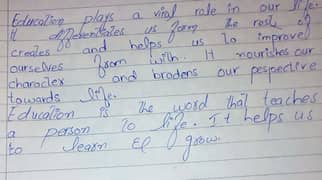 Education plays a viral role in our life.
it differentiates us form the rest of
creates and helps us to improve
ourselves from with. It nourishes our
character and bradens our pespective
towards life.
Education is the word that teaches
a person to life. It helps us
to learn & grow.